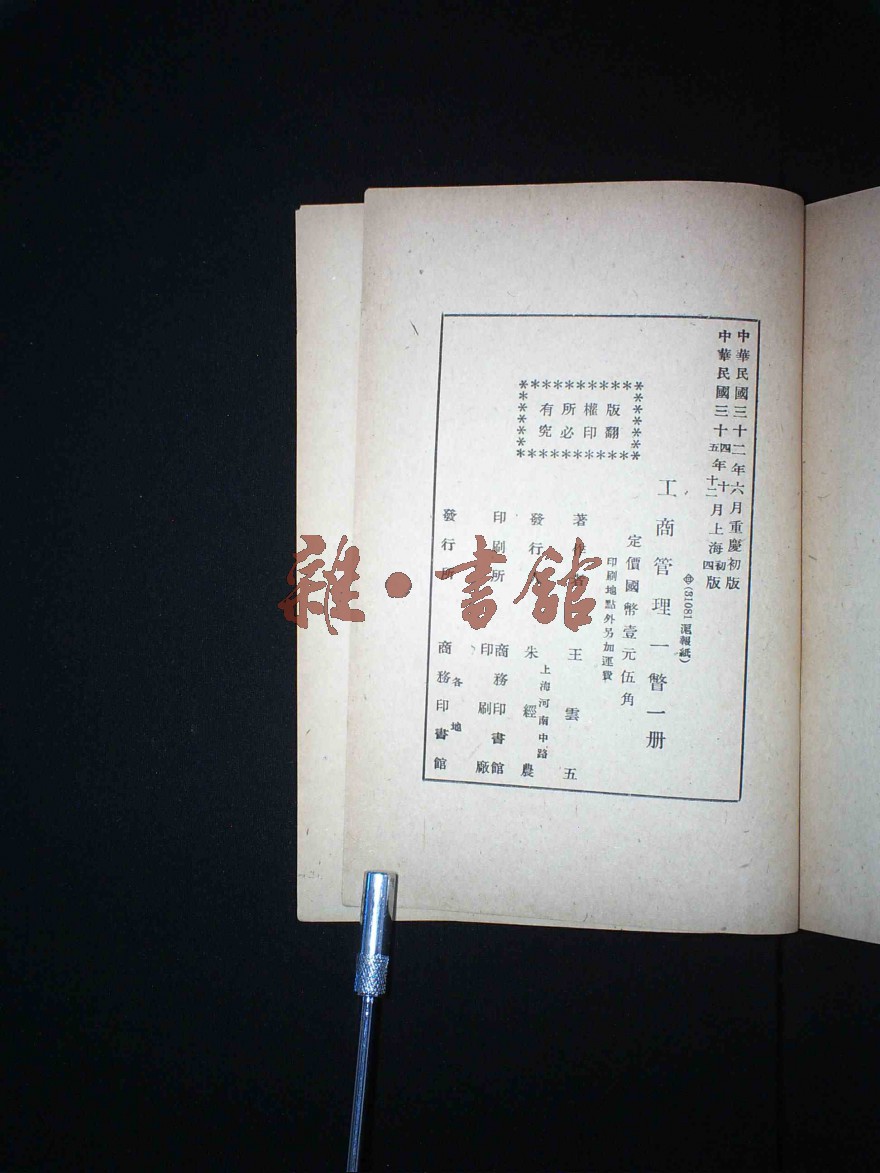 中華民國三十二年六月重慶初版
中華民國三十四五年十十二月上海初四版
㊥(81081滬報紙)
工商管理一瞥一册
定價國幣壹元伍角
印刷地點外另加運費
版權所有
翻印必究
著作者 王雲五
上海河南中路
發行人 朱經農
印刷所 商務印書館
印刷廠
各地
發行所 商務印書館
雜·書館